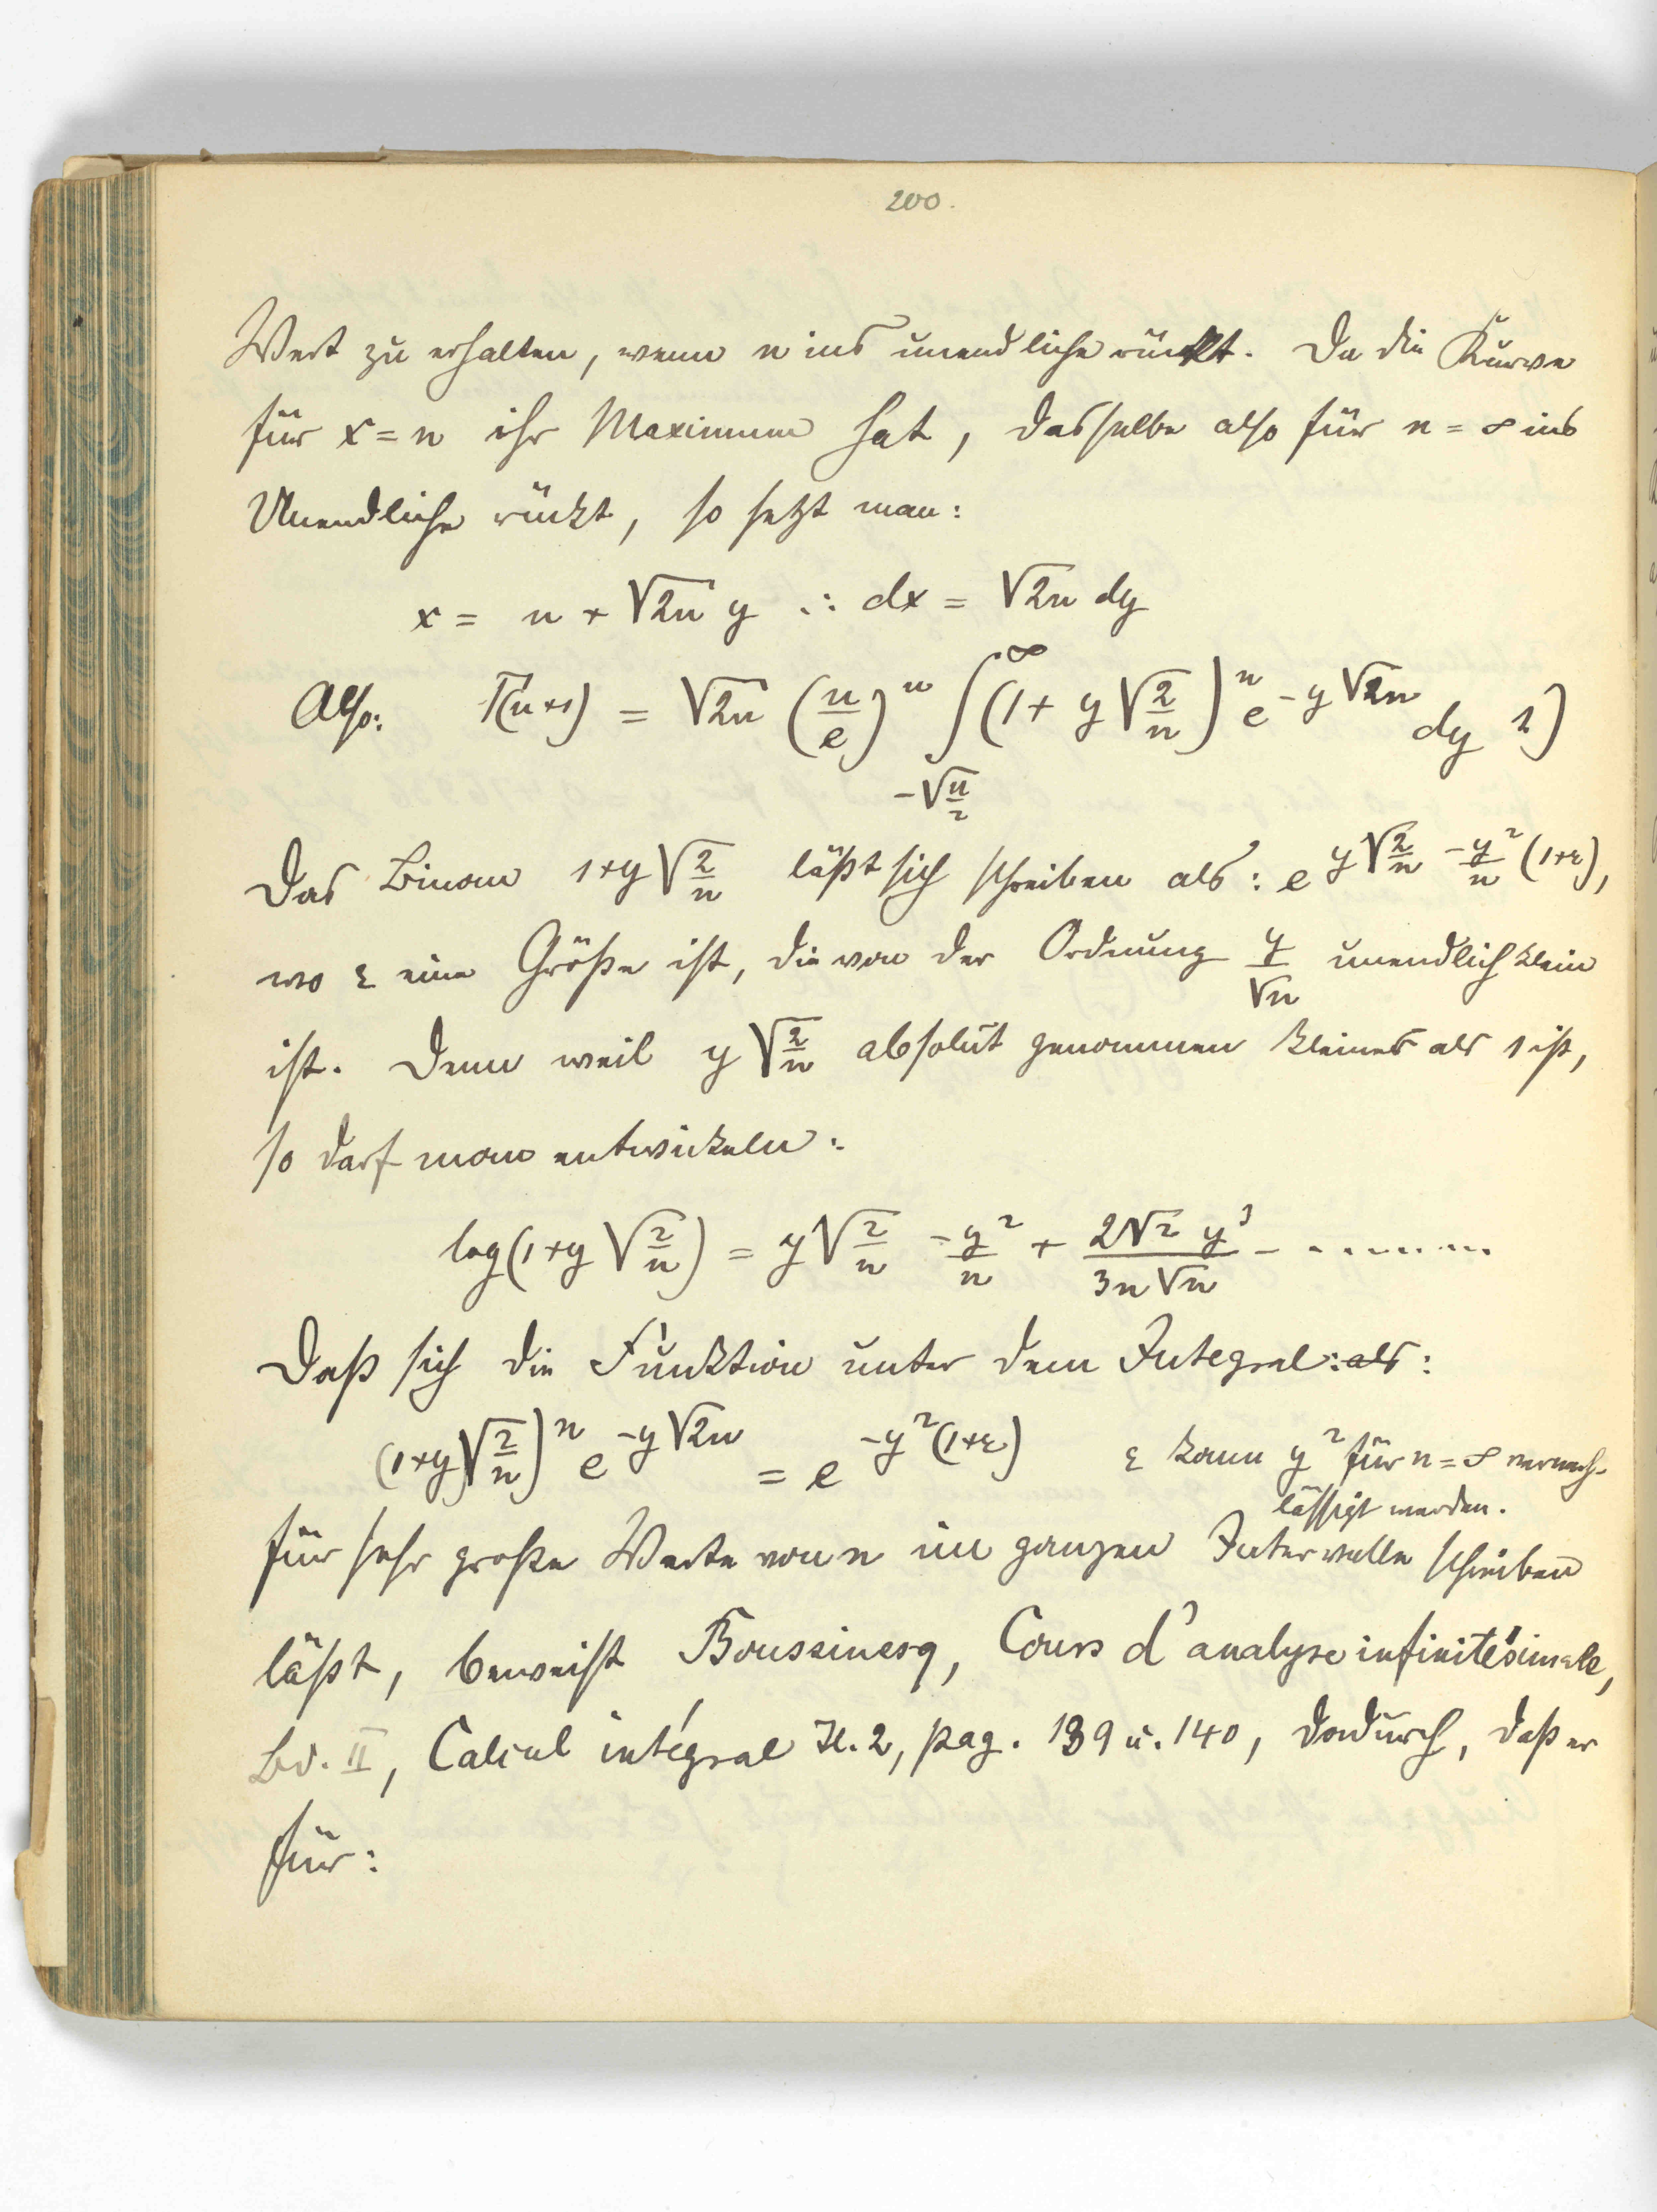 200.
Wert zu erhalten, wenn n ins unendliche rückt. Da die Kurve
für x = n ihr Maximum hat, dasselbe also für n = ∞ ins
Unendliche rückt, so setzt man:
x = n + √2n y ∴ dx = √2n dy
Also: Γ(n+1) = √2n (n/e)^n ∫_{-√(n/2)}^{∞} (1 + y √(2/n))^n e^{-y√2n} dy 1)
Das Binom 1+y√(2/n) läßt sich schreiben als: e^{y√(2/n) - y²/n (1+ε)},
wo ε eine Größe ist, die von der Ordnung y/√n unendlich klein
ist. Denn weil y√(2/n) absolut genommen kleiner als 1 ist,
so darf man entwickeln:
log(1+y√(2/n)) = y√(2/n) - y²/n + 2√2 y³/3n√n - ........
Daß sich die Funktion unter dem Integral: als:
(1+y√(2/n))^n e^{-y√2n} = e^{-y²(1+ε)} ε kann y² für n = ∞ vernach-
lässigt werden.
für sehr große Werte von n im ganzen Intervalle schreiben
läßt, beweist Boussinesq, Cours d'analyse infinitésimale,
Bd. II, Calcul intégral H. 2, pag. 139 u. 140, dadurch, daß er
für: